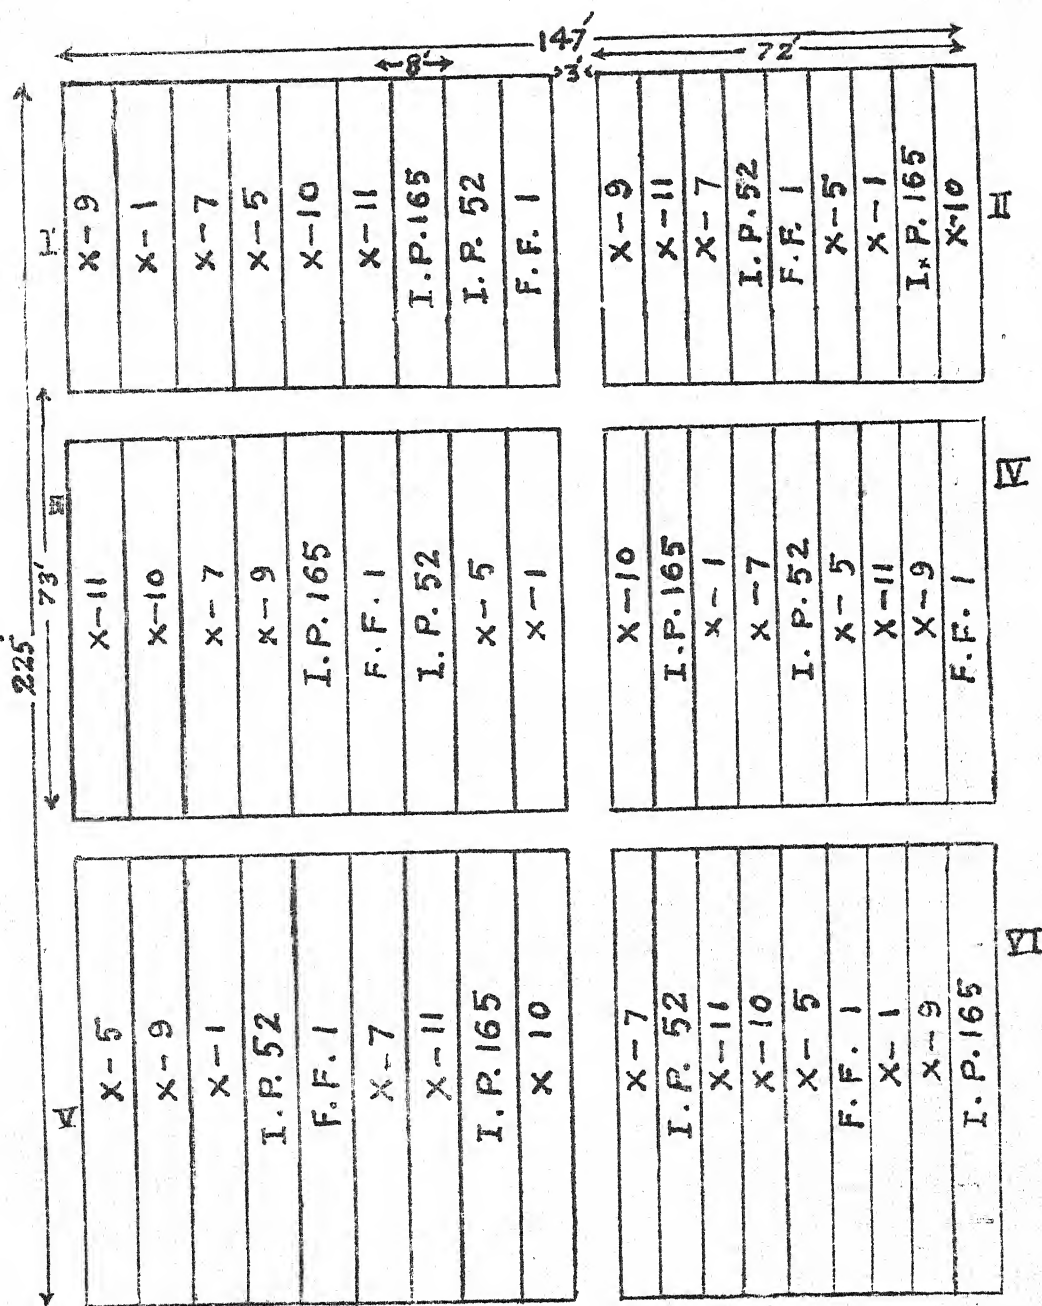 147'
8'
3'
72'
225'
73'
I
X-9
X-1
X-7
X-5
X-10
X-11
I.P.165
I.P. 52
F.F. 1
II
X-9
X-11
X-7
I.P.52
F.F. 1
X-5
X-1
I.P.165
X-10
III
X-11
X-10
X-7
X-9
I.P.165
F.F. 1
I.P.52
X-5
X-1
IV
X-10
I.P.165
X-1
X-7
I.P.52
X-5
X-11
X-9
F.F. 1
V
X-5
X-9
X-1
I.P.52
F.F.1
X-7
X-11
I.P.165
X 10
VI
X-7
I.P. 52
X-11
X-10
X-5
F.F. 1
X-1
X-9
I.P.165